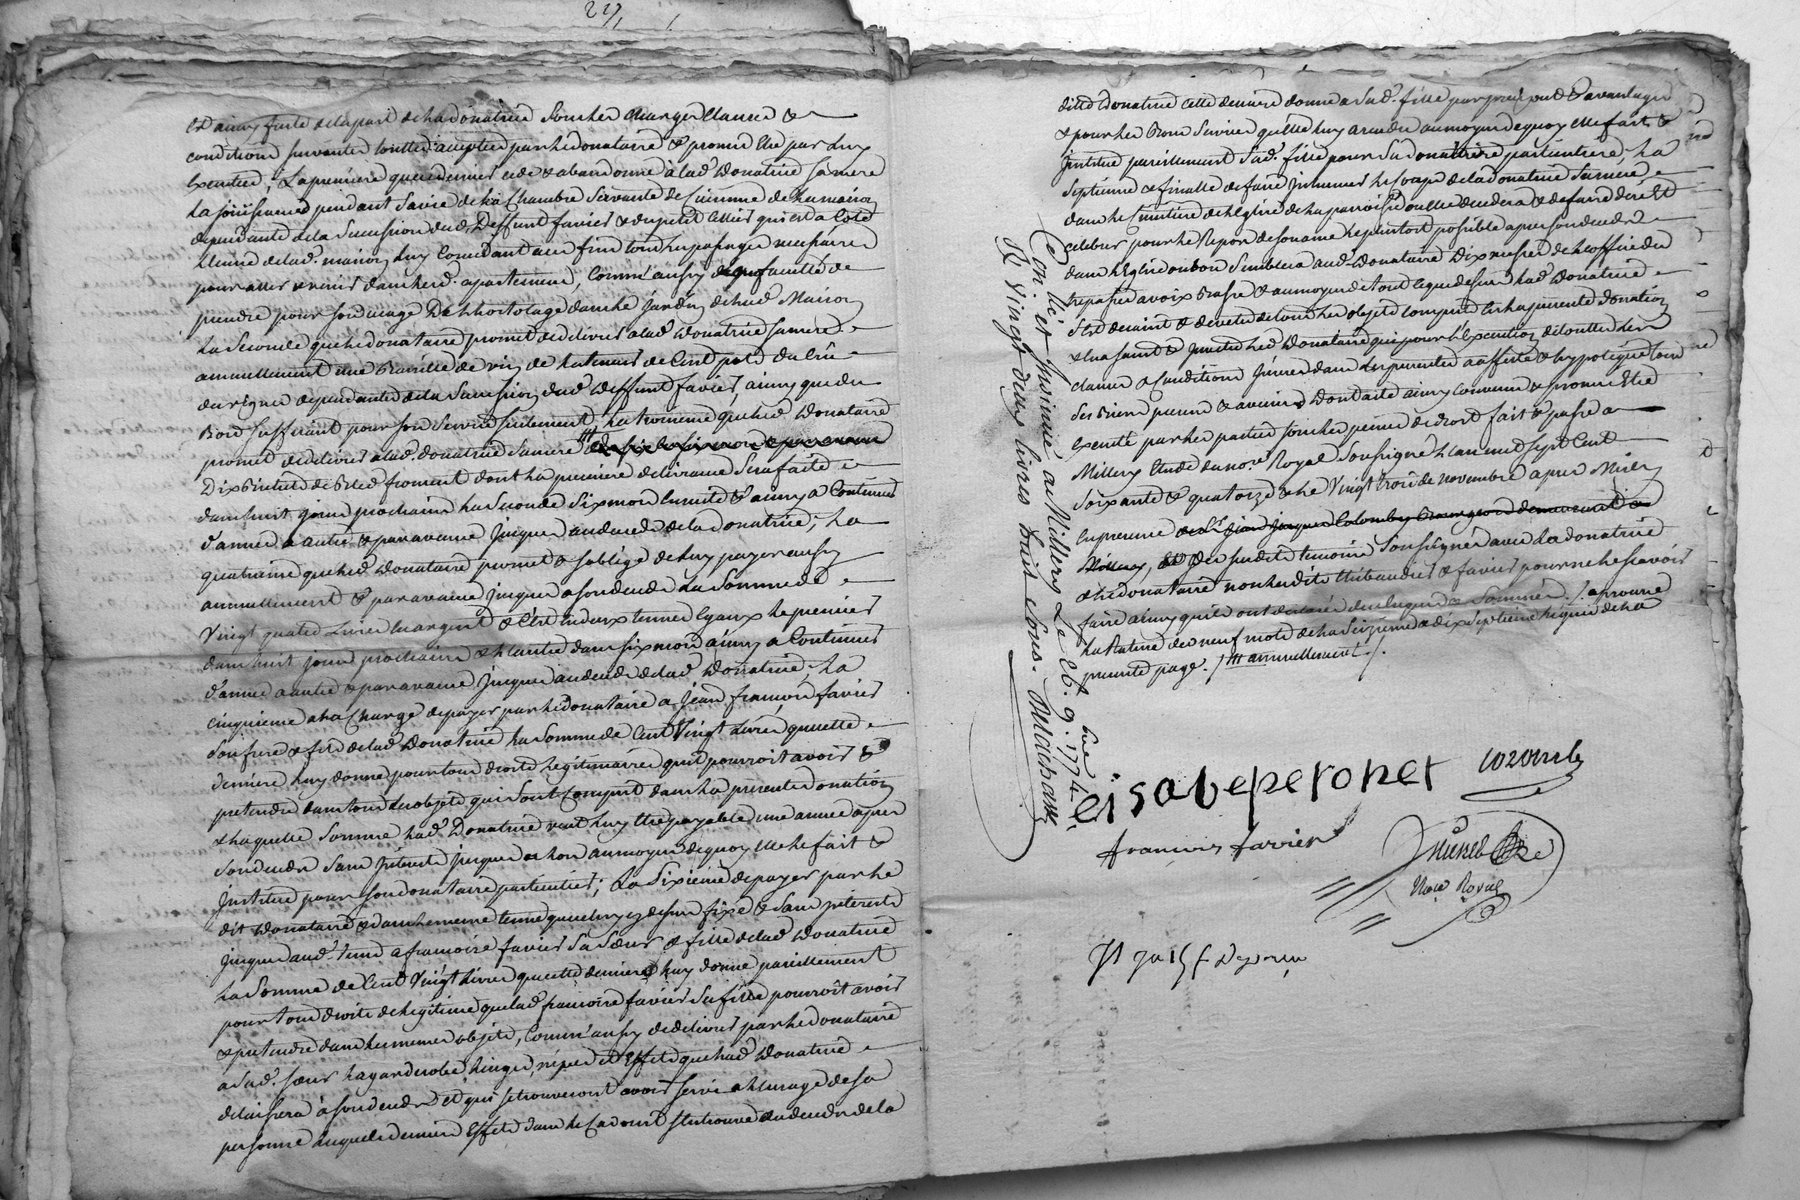 Est ainsy faite de la part de la donatrice sous les charges clauses &
conditions suivantes touttes acceptées par le donataire & promis Etre par luy
Executées, La premiere que ce dernier cede & abandonne à lad. donatrice sa mere
La joüissance pendant sa vie de la Chambre servante de Cuisinne de la maison
dependante de la succession dud. Deffunt favier &
llienne de lad. maison luy Concedant a ces fins tous les passages necessaires
pour aller & venir dans led. apartement, Comm'aussy la faculté de
prendre pour son usage De L'hortolage dans le Jardin de lad. Maison
La Seconde que le donataire promet de delivrer a lad. Donatrice sa mere
annuellement une Barrille de vin de la teneur de Cent pots du Crû
des vignes dependantes de la Succession dud. deffunt favier, ainsy que du
Bois suffisant pour son service seulement, La troisieme que led. Donataire
promet de delivrer a lad. donatrice sa mere
Dix Bichets de Bled froment dont la premiere delivrance sera faitte
dans huit jours prochains la seconde Six mois Ensuitte & ainsy a Continuer
d'année a autre & par avance jusques au deces de la donatrice, La
quatrieme que led. Donataire promet & s'oblige de luy payer aussy
annuellement & par avance jusques a son deces La somme de
Vingt quatre Livres en argent & C'est en deux termes Egaux le premier
dans huit jours prochains & l'autre dans six mois ainsy a Continuer
d'année a autre & par avance jusques au deces de lad. Donatrice, La
cinquieme a la Charge de payer par le donataire a Jean françois favier
son frere & fils de lad. Donatrice la somme de Cent Vingt Livres que cette
derniere luy donne pour tous droits Legitimaires qu'il pourroit avoir &
pretendre dans tous les objets qui sont Compris dans la presente donation
& laquelle somme lad. Donatrice veut luy Etre payable une année après
son deces sans Interets jusques alors au moyen de quoy elle le fait &
Institue pour son donataire particulier, La Sixieme de payer par le
dit Donataire & dans le meme terme que celuy cy dessus fixé & sans interets
jusques aud. terme a françoise favier sa sœur & fille de lad. Donatrice
La somme de Cent Vingt Livres que cette derniere luy donne pareillement
pour tous droits de legitime que lad. françoise favier sa fille pourroit avoir
& pretendre dans les memes objets, Comm'aussy de delivrer par le donataire
a sad. sœur la garderobe, linges, nipes et Effets que lad. Donatrice
delaissera à son deces et qui se trouveront avoir servi a l'usage de sa
personne lesquels derniers Effets dans le Cas ou il s'en trouve au deces de la
ditte donatrice cette derniere donne a sad. fille par preciput & avantage
& pour les Bons services qu'elle luy a rendu au moyen de quoy elle fait &
Institue pareillement sad. fille pour sa donataire particuliere, La
Septieme & finalle de faire Inhumer le Corps de la donatrice sa mere
dans le Cimetiere de l'Eglise de la parroisse ou elle decedera & de faire dire &
celebrer pour le Repos de son ame le plutot possible apres son deces
dans l'Eglise ou bon semblera aud. Donataire Dix messes de l'office des
trepassés a voix Basse & au moyen de tout ce que dessus lad. Donatrice
s'est demise & devetue de tous les objets compris en la presente donation
& en a saisi & Investi led. Donataire qui pour l'Execution de touttes les
clauses & Conditions Inserées dans les presentes a affecté & hypotequé tous
ses Biens presents & avenirs Dont acte ainsy convenu & promis Etre
Executé par les parties sous les peines de droit fait & passé a
Millery Etude du nore. Royal soussigné L'an mil sept Cent
Soixante & quatorze & le Vingt trois de novembre apres Midy
En presence
Millery, & des susdits temoins soussignés avec la donatrice
& le donataire non lesdits Thibaudier & favier pour ne le sçavoir
faire ainsy qu'ils ont declaré de ce Enquis & sommés ./. approuvé
La Rature de neuf mots de la seizieme a dix septieme lignes de la
presente page. /# annuellement ./.
Conllé et Insinué a Millery Le 26. 9bre. 1774.
R. Vingt deux livres huit sols. Machard
eisabeperonet
françois favier
Nore. Royal